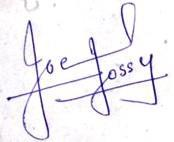 Joe Jossy